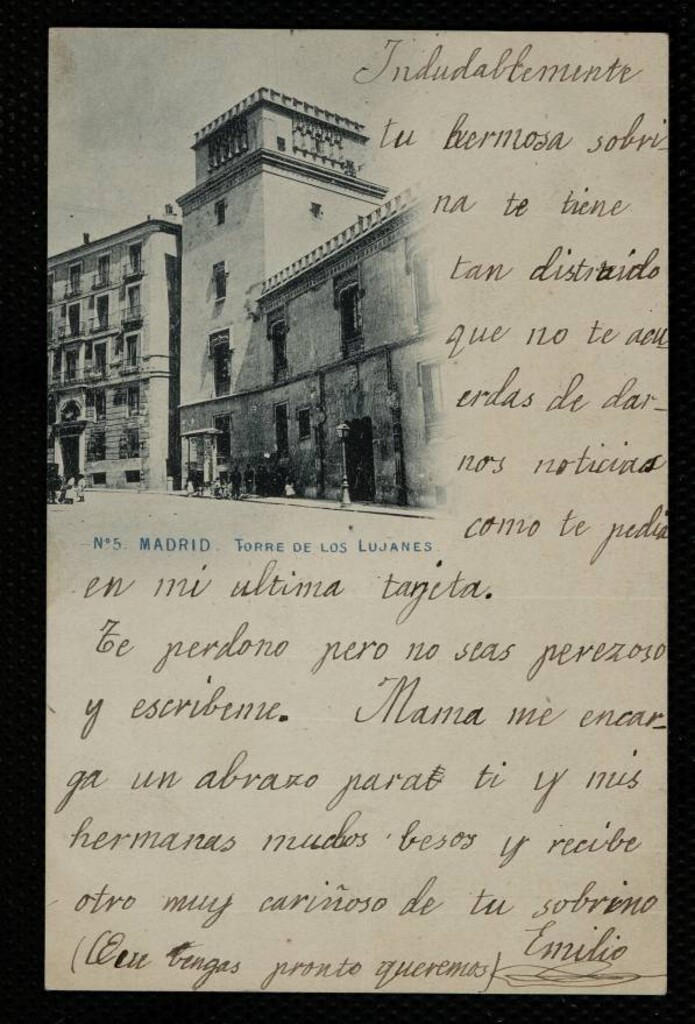 Indudablemente
tu hermosa sobri-
na te tiene
tan distraido
que no te acu
erdas de dar-
nos noticias
como te pedia
Nº5. MADRID. TORRE DE LOS LUJANES
en mi ultima tarjeta.
Te perdono pero no seas perezoso
y escribeme. Mama me encar-
ga un abrazo para ti y mis
hermanas muchos besos y recibe
otro muy cariñoso de tu sobrino
(Que vengas pronto queremos) Emilio